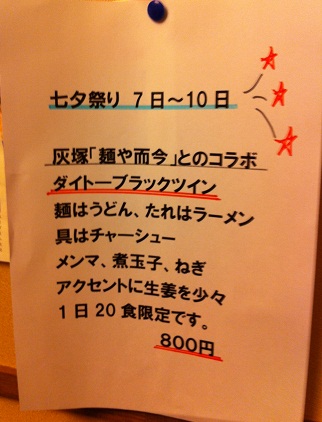 七夕祭り 7日～10日
灰塚「麺や而今」とのコラボ
ダイトーブラックツイン
麺はうどん、たれはラーメン
具はチャーシュー
メンマ、煮玉子、ねぎ
アクセントに生姜を少々
1日20食限定です。
800円